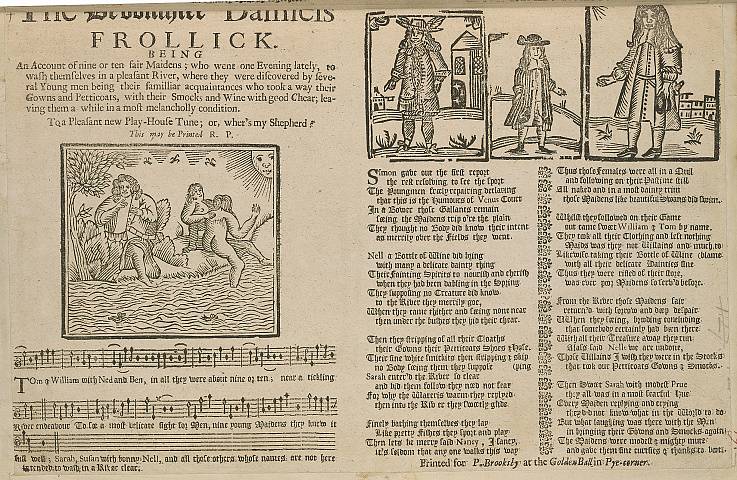 The Damsels
FROLLICK.
BEING
An Account of nine or ten fair Maidens; who went one Evening lately, to
wash themselves in a pleasant River, where they were discovered by seve-
ral Young men being their familliar acquaintances who took a way their
Gowns and Petticoats, with their Smocks and Wine with good Chear; lea-
ving them a while in a most melancholly condition.
To a Pleasant new Play-House Tune; or, wher's my Shepherd?
This may be Printed R. P.
TOm & William with Ned and Ben, in all they were about nine or ten; near a tickling
River endeavour To see a most delicate sight for Men, nine young Maidens they knew it
full well; Sarah, Susan with bonny Nell, and all those others whose names are not here
intended to wash in a River clear.
Simon gave out the first report
the rest resolving to see the sport
The Youngmen freely repairing declaring
that this is the Humours of Venus Court
In a Bower those Gallants remain
seeing the Maidens trip o're the plain
They thought no Body did know their intent
as merrily over the Fields they went.
Nell a Bottle of Wine did bring
with many a delicate dainty thing
Their Fainting Spirits to nourish and cherish
when they had been dabling in the Spring
They supposing no Creature did know
to the River they merrily goe,
When they came thither and seeing none near
then under the bushes they hid their chear.
Then they stripping of all their Cloaths
their Gowns their Petticoats Shooes & Hose.
Their fine white smickets then stripping & skip
no Body seeing them they suppose (ping
Sarah enter'd the River so clear
and bid them follow they need not fear
For why the Water is warm they replyed
then into the River they sweetly glide.
Finely bathing themselves they lay
Like pretty Fishes they sport and play
Then lets be merry said Nancy, I fancy,
it's seldom that any one walks this way
Thus those Females were all in a Quill
and following on their Pastime still
All naked and in a most dainty trim
those Maidens like beautiful Swans did swim.
Whilst they followed on their Game
out came sweet William & Tom by name,
They took all their Clothing and left nothing
Maids was they not Villains and much to
Likewise taking their Bottle of Wine (blame
with all their delicate Dainties fine
Thus they were rifled of their store,
was ever poor Maidens so serv'd before.
From the River those Maidens fair
return'd with sorrow and deep despair
When they seeing, brooding concluding
that somebody certainly had been there
With all their Treasure away they run
Alass said Nelly we are undone,
Those Villains I wish they were in the Stocks
that took our Petticoats Gowns & Smocks.
Then Sweet Sarah with modest Prue
they all was in a most fearful Hue
Every Maiden replying and crying
they did not know what in the World to do
But what laughing was there with the Men
in bringing their Gowns and Smocks again
The Maidens were modest & mighty mute
and gave them fine curtsies & thanks to boot.
Printed for P. Brooksby at the Golden Ball in Pye-corner.